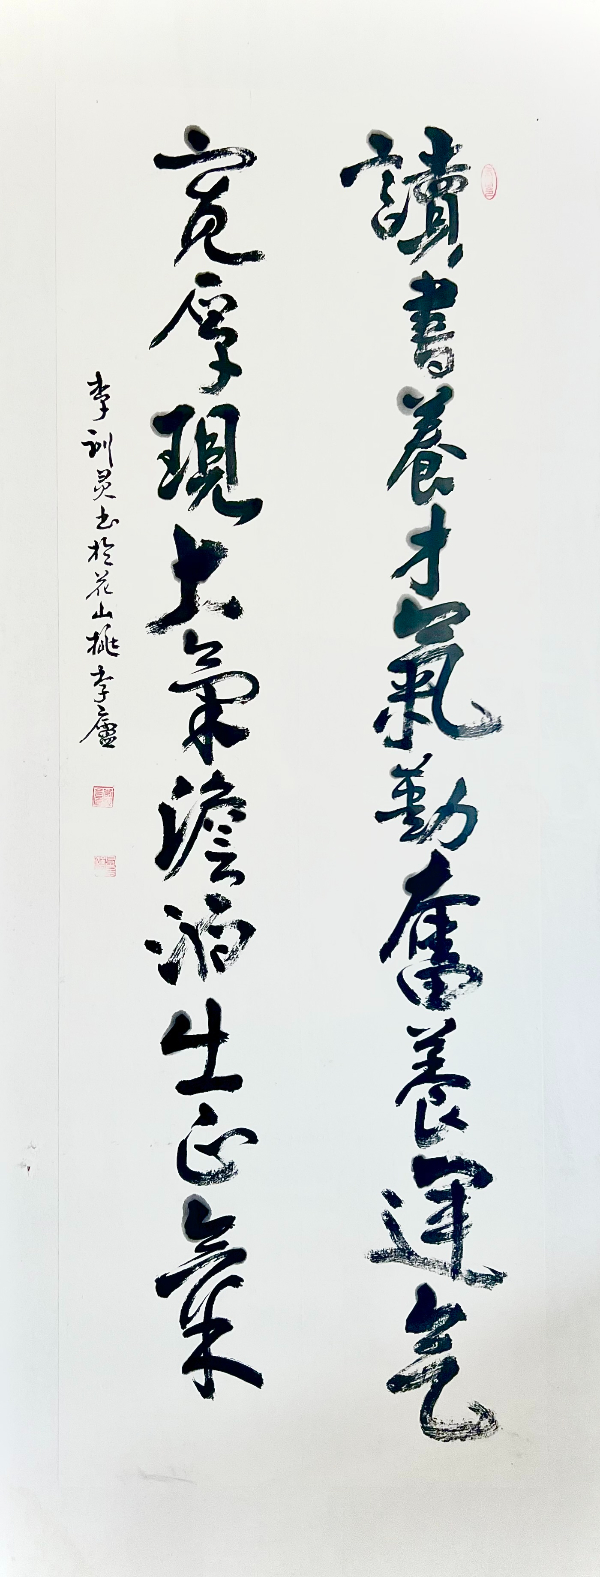 讀書養才氣勤奮養運气
寬厚現大氣澹泊生正氣
李訓英书於花山桃李廬